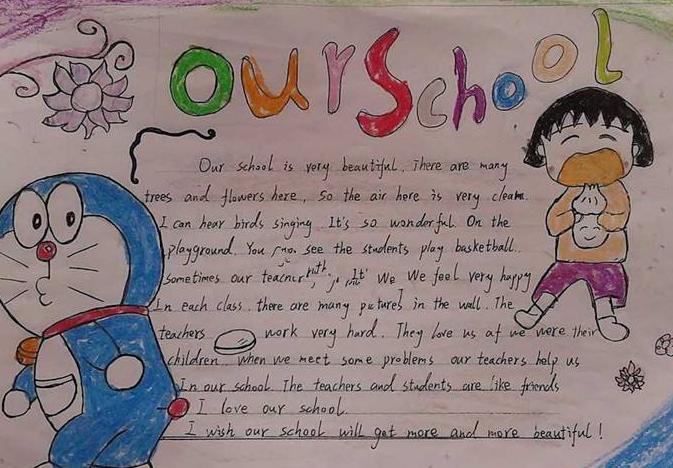 Our School
Our school is very beautiful. There are many
trees and flowers here, So the air here is very clean.
I can hear birds singing. It's so wonderful. On the
playground. You see the students play basketball.
sometimes our We We feel very happy
In each class. there are many pictures in the wall. The
teachers work very hard. They love us af we were their
children. when we meet some problems our teachers help us
In our school. The teachers and students are like friends
I love our school.
I wish our school will get more and more beautiful!